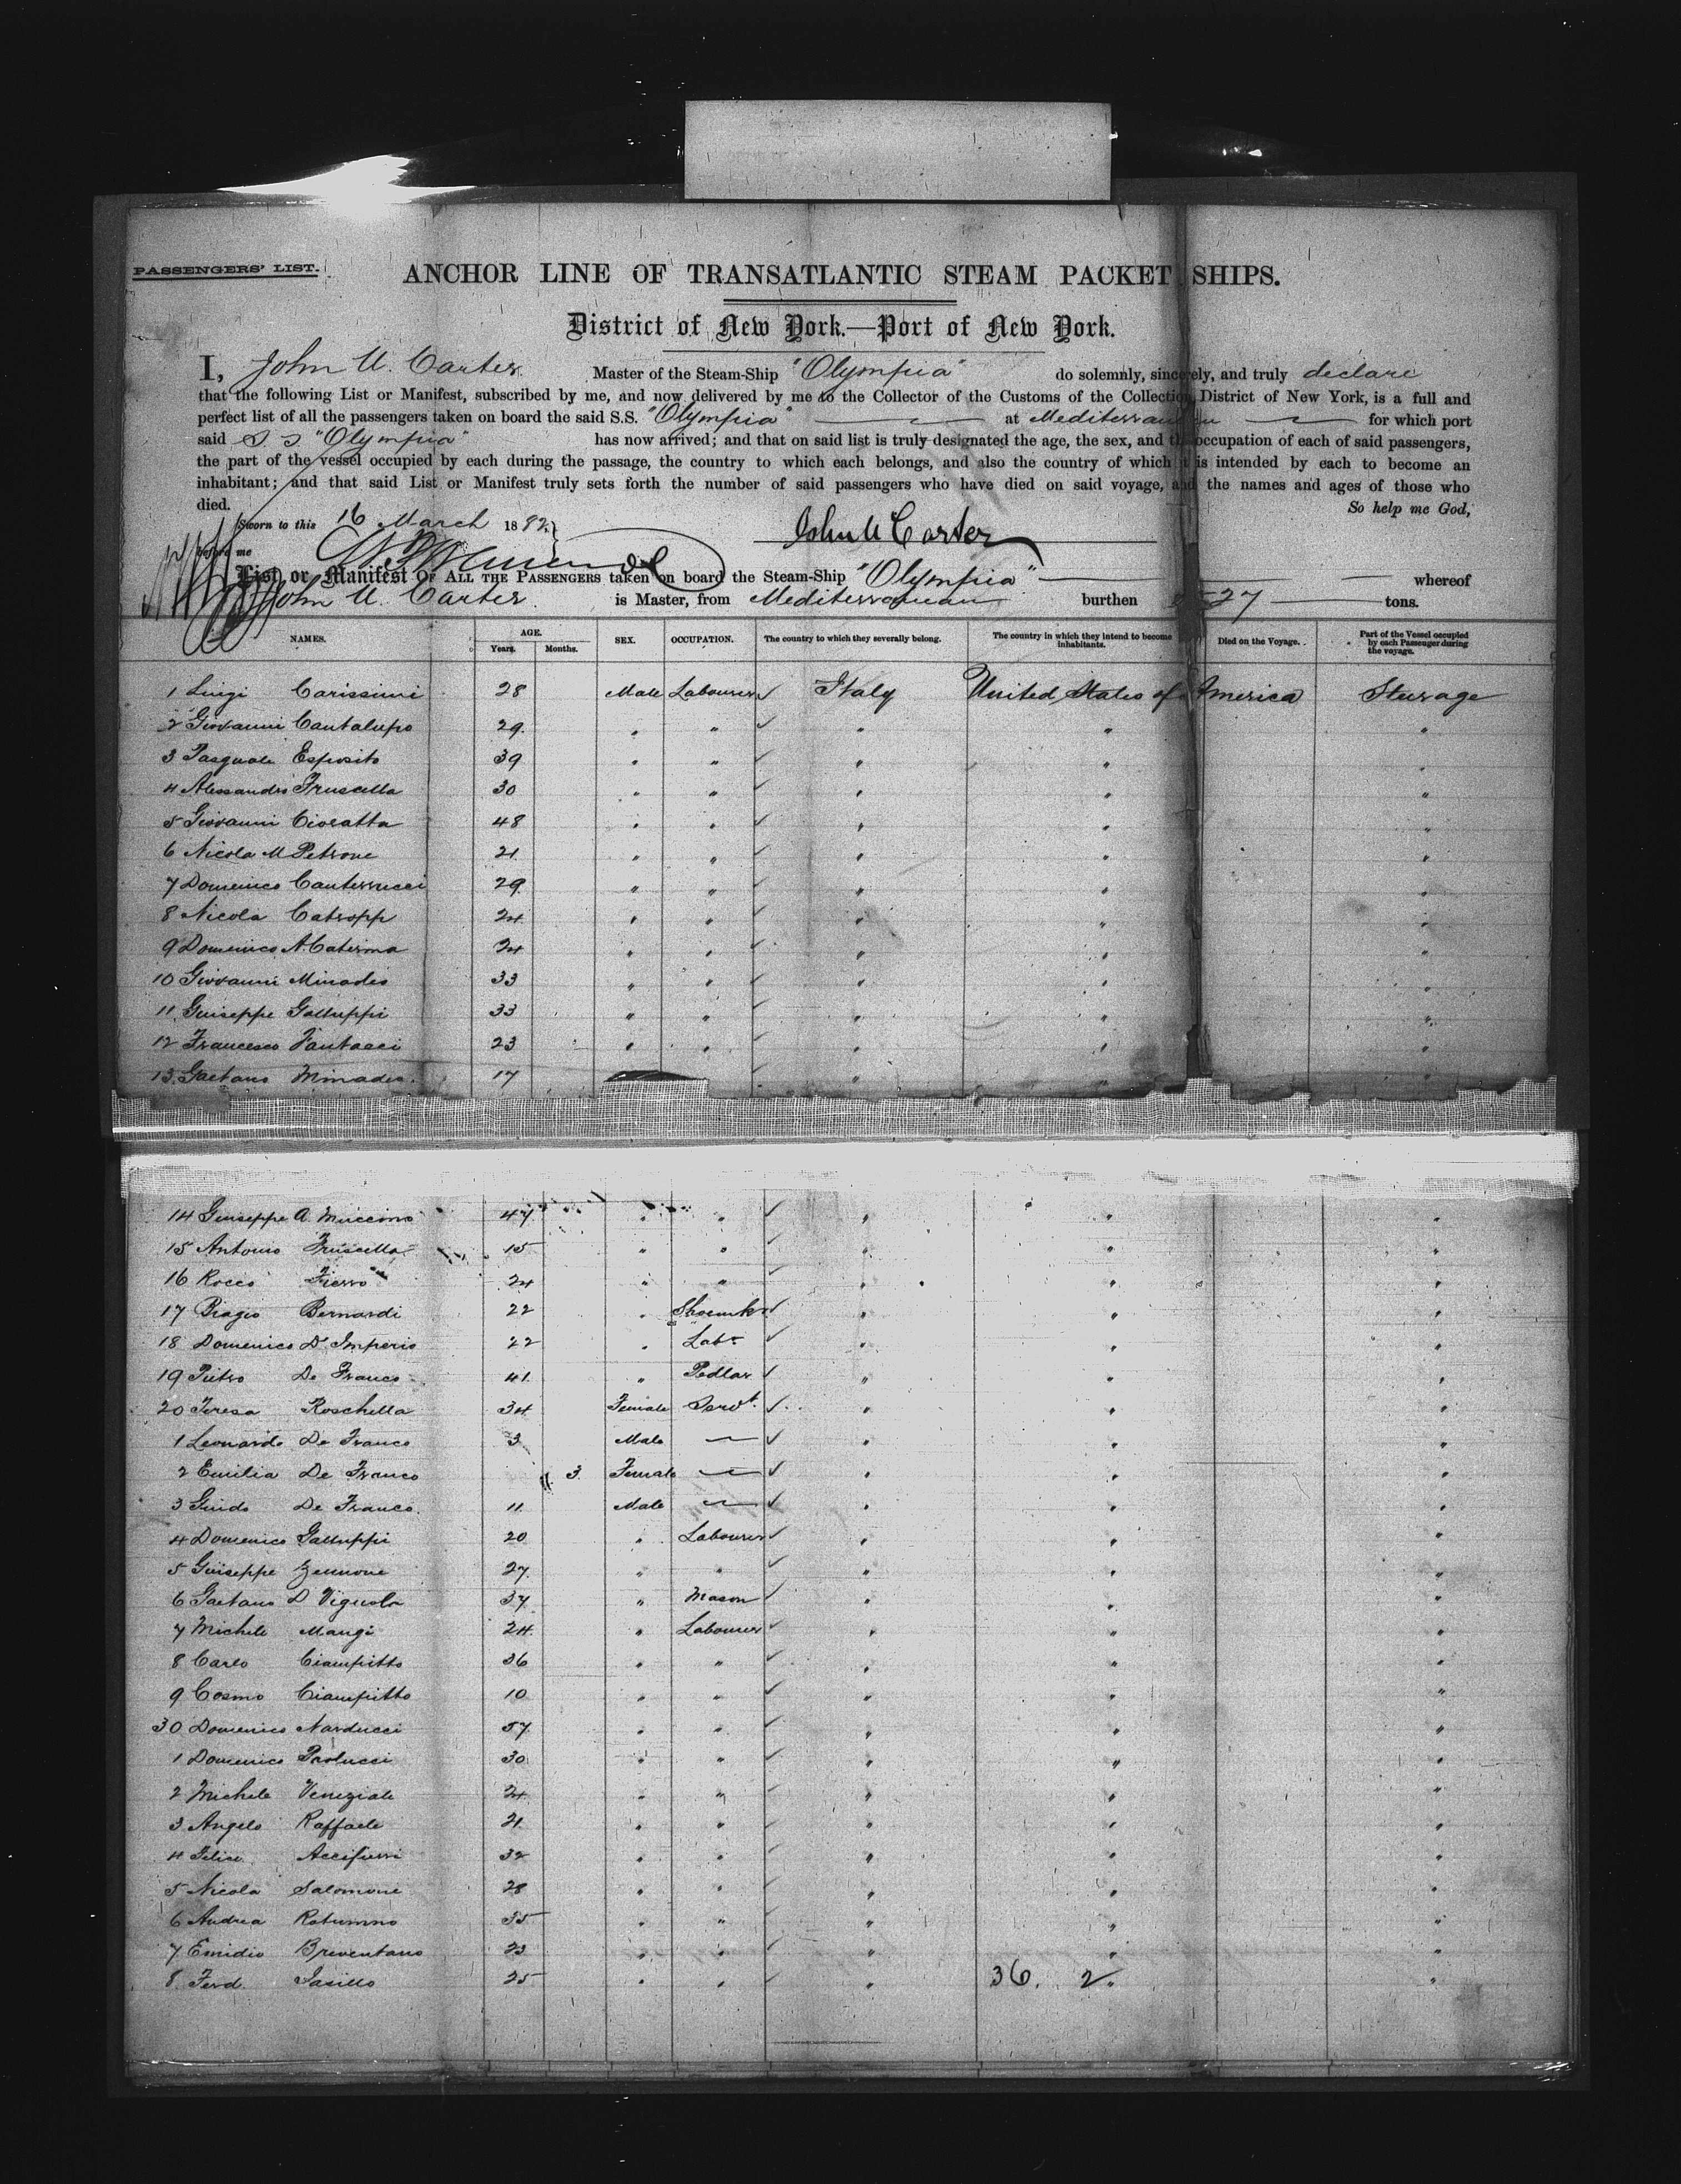 PASSENGERS' LIST.
ANCHOR LINE OF TRANSATLANTIC STEAM PACKET SHIPS.
District of New York.—Port of New York.
I, John U. Carter Master of the Steam-Ship "Olympia" do solemnly, sincerely, and truly declare
that the following List or Manifest, subscribed by me, and now delivered by me to the Collector of the Customs of the Collection District of New York, is a full and
perfect list of all the passengers taken on board the said S.S. "Olympia" at Mediterranean for which port
said S S "Olympia" has now arrived; and that on said list is truly designated the age, the sex, and the occupation of each of said passengers,
the part of the vessel occupied by each during the passage, the country to which each belongs, and also the country of which it is intended by each to become an
inhabitant; and that said List or Manifest truly sets forth the number of said passengers who have died on said voyage, and the names and ages of those who
died. So help me God,
Sworn to this 16 March 1882 John U Carter
before me
List or Manifest OF ALL THE PASSENGERS taken on board the Steam-Ship "Olympia" whereof
John U. Carter is Master, from Mediterranean burthen 27 tons.
NAMES. AGE. Years. Months. SEX. OCCUPATION. The country to which they severally belong. The country in which they intend to become inhabitants. Died on the Voyage. Part of the Vessel occupied by each Passenger during the voyage.
1 Luigi Carissimi 28 Male Labourer ✓ Italy United States of America Steerage
2 Giovanni Cantalupo 29 " " ✓ " " "
3 Pasquale Esposito 39 " " ✓ " " "
4 Alessandro Fruscella 30 " " ✓ " " "
5 Giovanni Cioratta 48 " " ✓ " " "
6 Nicola M Petrone 21 " " ✓ " " "
7 Domenico Canterucci 29 " " ✓ " " "
8 Nicola Catropp 24 " " ✓ " " "
9 Domenico A. Caterina 24 " " ✓ " " "
10 Giovanni Minadeo 33 " " ✓ " " "
11 Guiseppe Galluppi 33 " " ✓ " " "
12 Francesco Fantacci 23 " " ✓ " " "
13 Gaetano Minadeo 17 " " "
14 Guiseppe A. Muccino 47 " " ✓ " " "
15 Antonio Fruscella 15 " " ✓ " " "
16 Rocco Fierro 24 " " ✓ " " "
17 Biagio Bernardi 22 " Shoemkr ✓ " " "
18 Domenico D'Imperio 22 " Labr ✓ " " "
19 Pietro De Franco 41 " Pedlar ✓ " " "
20 Teresa Roschella 34 Female Servt. ✓ " " "
1 Leonardo De Franco 3 Male — ✓ " " "
2 Emilia De Franco 3 Female — ✓ " " "
3 Guido De Franco 11 Male — ✓ " " "
4 Domenico Galluppi 20 " Labourer ✓ " " "
5 Guiseppe Zennone 27 " " ✓ " " "
6 Gaetano D Vignola 37 " Mason ✓ " " "
7 Michele Mangi 24 " Labourer ✓ " " "
8 Carlo Ciampitto 36 " " ✓ " " "
9 Cosmo Ciampitto 10 " " ✓ " " "
30 Domenico Narducci 57 " " ✓ " " "
1 Domenico Paolucci 30 " " ✓ " " "
2 Michele Veneziale 24 " " ✓ " " "
3 Angelo Raffaele 21 " " ✓ " " "
4 Felice 32 " " ✓ " " "
5 Nicola Salomone 28 " " ✓ " " "
6 Andrea Rotunno 35 " " ✓ " " "
7 Emidio Breventano 23 " " ✓ " " "
8 Ferd. Iasillo 25 " " ✓ " 36. 2 " "